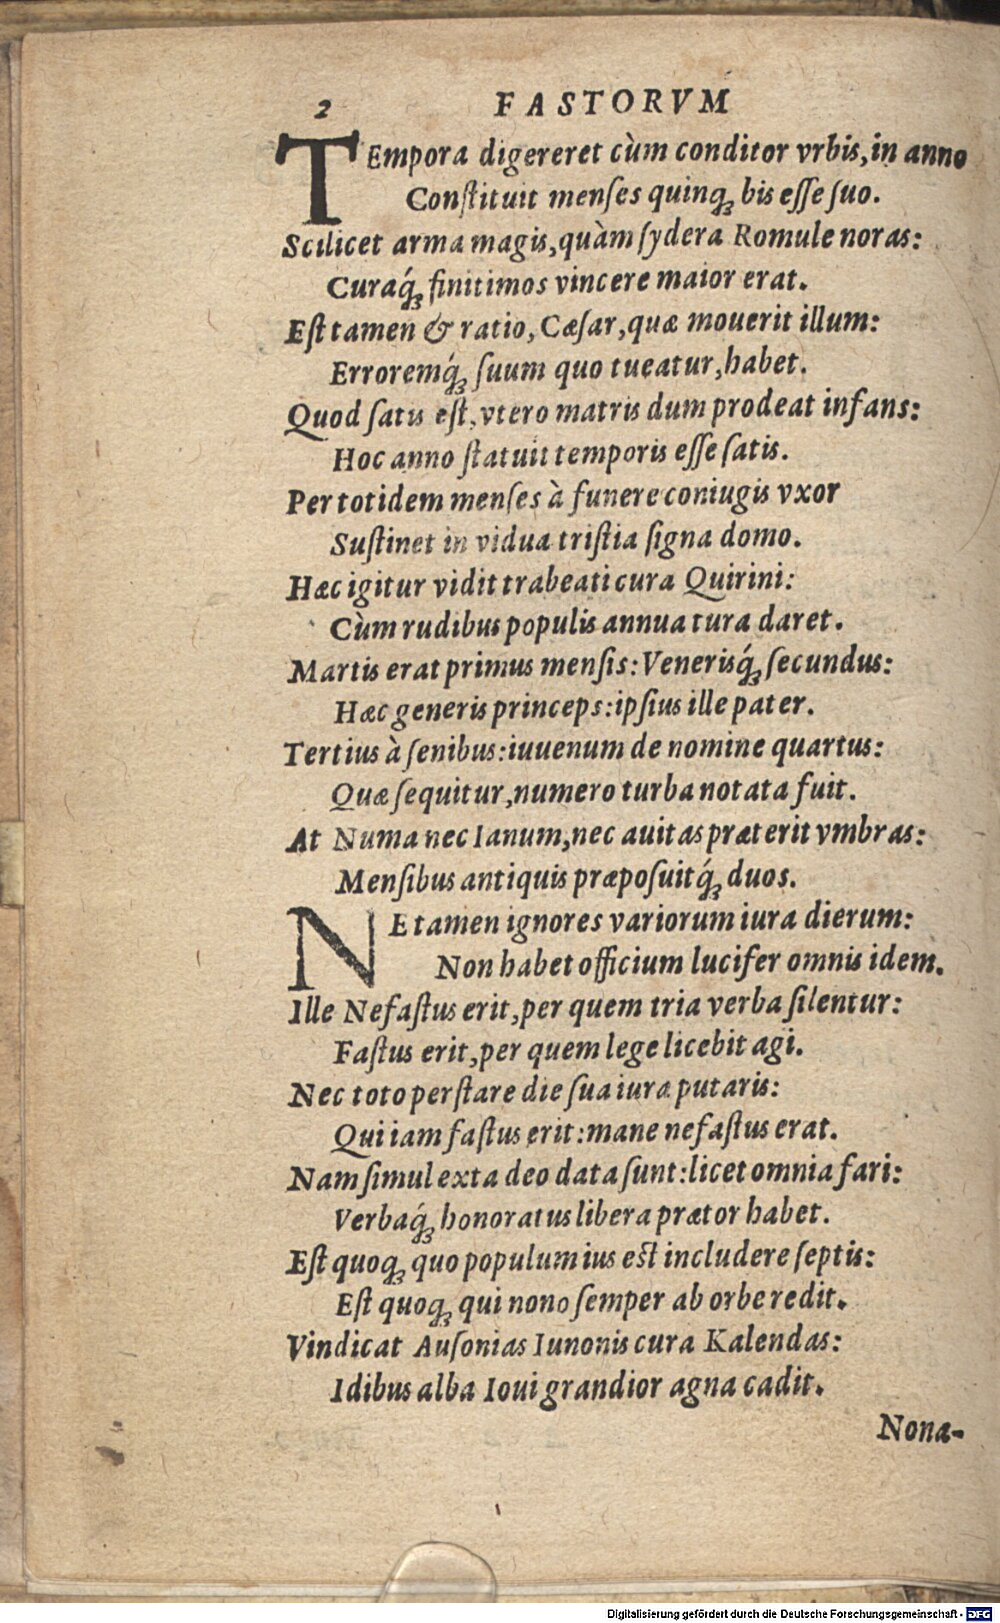 2 FASTORVM
TEmpora digereret cùm conditor vrbis, in anno
Conſtituit menſes quinqꝫ bis eſſe ſuo.
Scilicet arma magis, quàm ſydera Romule noras:
Curaq́ꝫ finitimos vincere maior erat.
Eſt tamen & ratio, Cæſar, quæ mouerit illum:
Erroremq́ꝫ ſuum quo tueatur, habet.
Quod ſatis eſt, vtero matris dum prodeat infans:
Hoc anno ſtatuit temporis eſſe ſatis.
Per totidem menſes à funere coniugis vxor
Suſtinet in vidua triſtia ſigna domo.
Hæc igitur vidit trabeati cura Quirini:
Cùm rudibus populis annua iura daret.
Martis erat primus menſis: Venerisq́ꝫ ſecundus:
Hæc generis princeps: ipſius ille pater.
Tertius à ſenibus: iuuenum de nomine quartus:
Quæ ſequitur, numero turba notata fuit.
At Numa nec Ianum, nec auitas præterit vmbras:
Menſibus antiquis præpoſuitq́ꝫ duos.
NE tamen ignores variorum iura dierum:
Non habet officium lucifer omnis idem.
Ille Nefaſtus erit, per quem tria verba ſilentur:
Faſtus erit, per quem lege licebit agi.
Nec toto perſtare die ſua iura putaris:
Qui iam faſtus erit: mane nefaſtus erat.
Nam ſimul exta deo data ſunt: licet omnia fari:
Verbaq́ꝫ honoratus libera prætor habet.
Eſt quoqꝫ quo populum ius eſt includere ſeptis:
Eſt quoqꝫ qui nono ſemper ab orbe redit.
Vindicat Auſonias Iunonis cura Kalendas:
Idibus alba Ioui grandior agna cadit.
Nona-
Digitalisierung gefördert durch die Deutsche Forschungsgemeinschaft - DFG